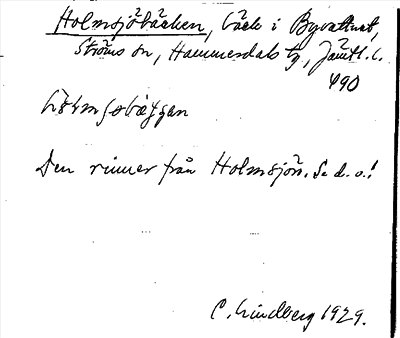 Holmsjöbäcken, bäck i Byvattnet,
Ströms sn, Hammerdals tg, Jämtl. l.
490
Den rinner från Holmsjön. Se d. o.!
C. Lindberg 1929.